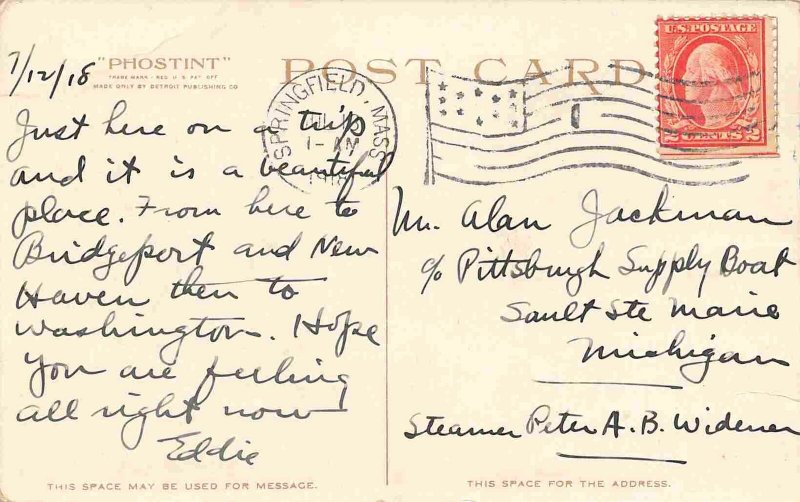 7/12/18
"PHOSTINT"
TRADE MARK - REG. U.S. PAT. OFF.
MADE ONLY BY DETROIT PUBLISHING CO.
POST CARD
U.S. POSTAGE
2 CENTS 2
SPRINGFIELD, MASS
1 - AM
Just here on a trip
and it is a beautiful
place. From here to
Bridgeport and New
Haven then to
Washington. Hope
you are feeling
all right now
Eddie
Mr. Alan Jackman
c/o Pittsburgh Supply Boat
Sault Ste Marie
Michigan
Steamer Peter A.B. Widener
THIS SPACE MAY BE USED FOR MESSAGE.
THIS SPACE FOR THE ADDRESS.